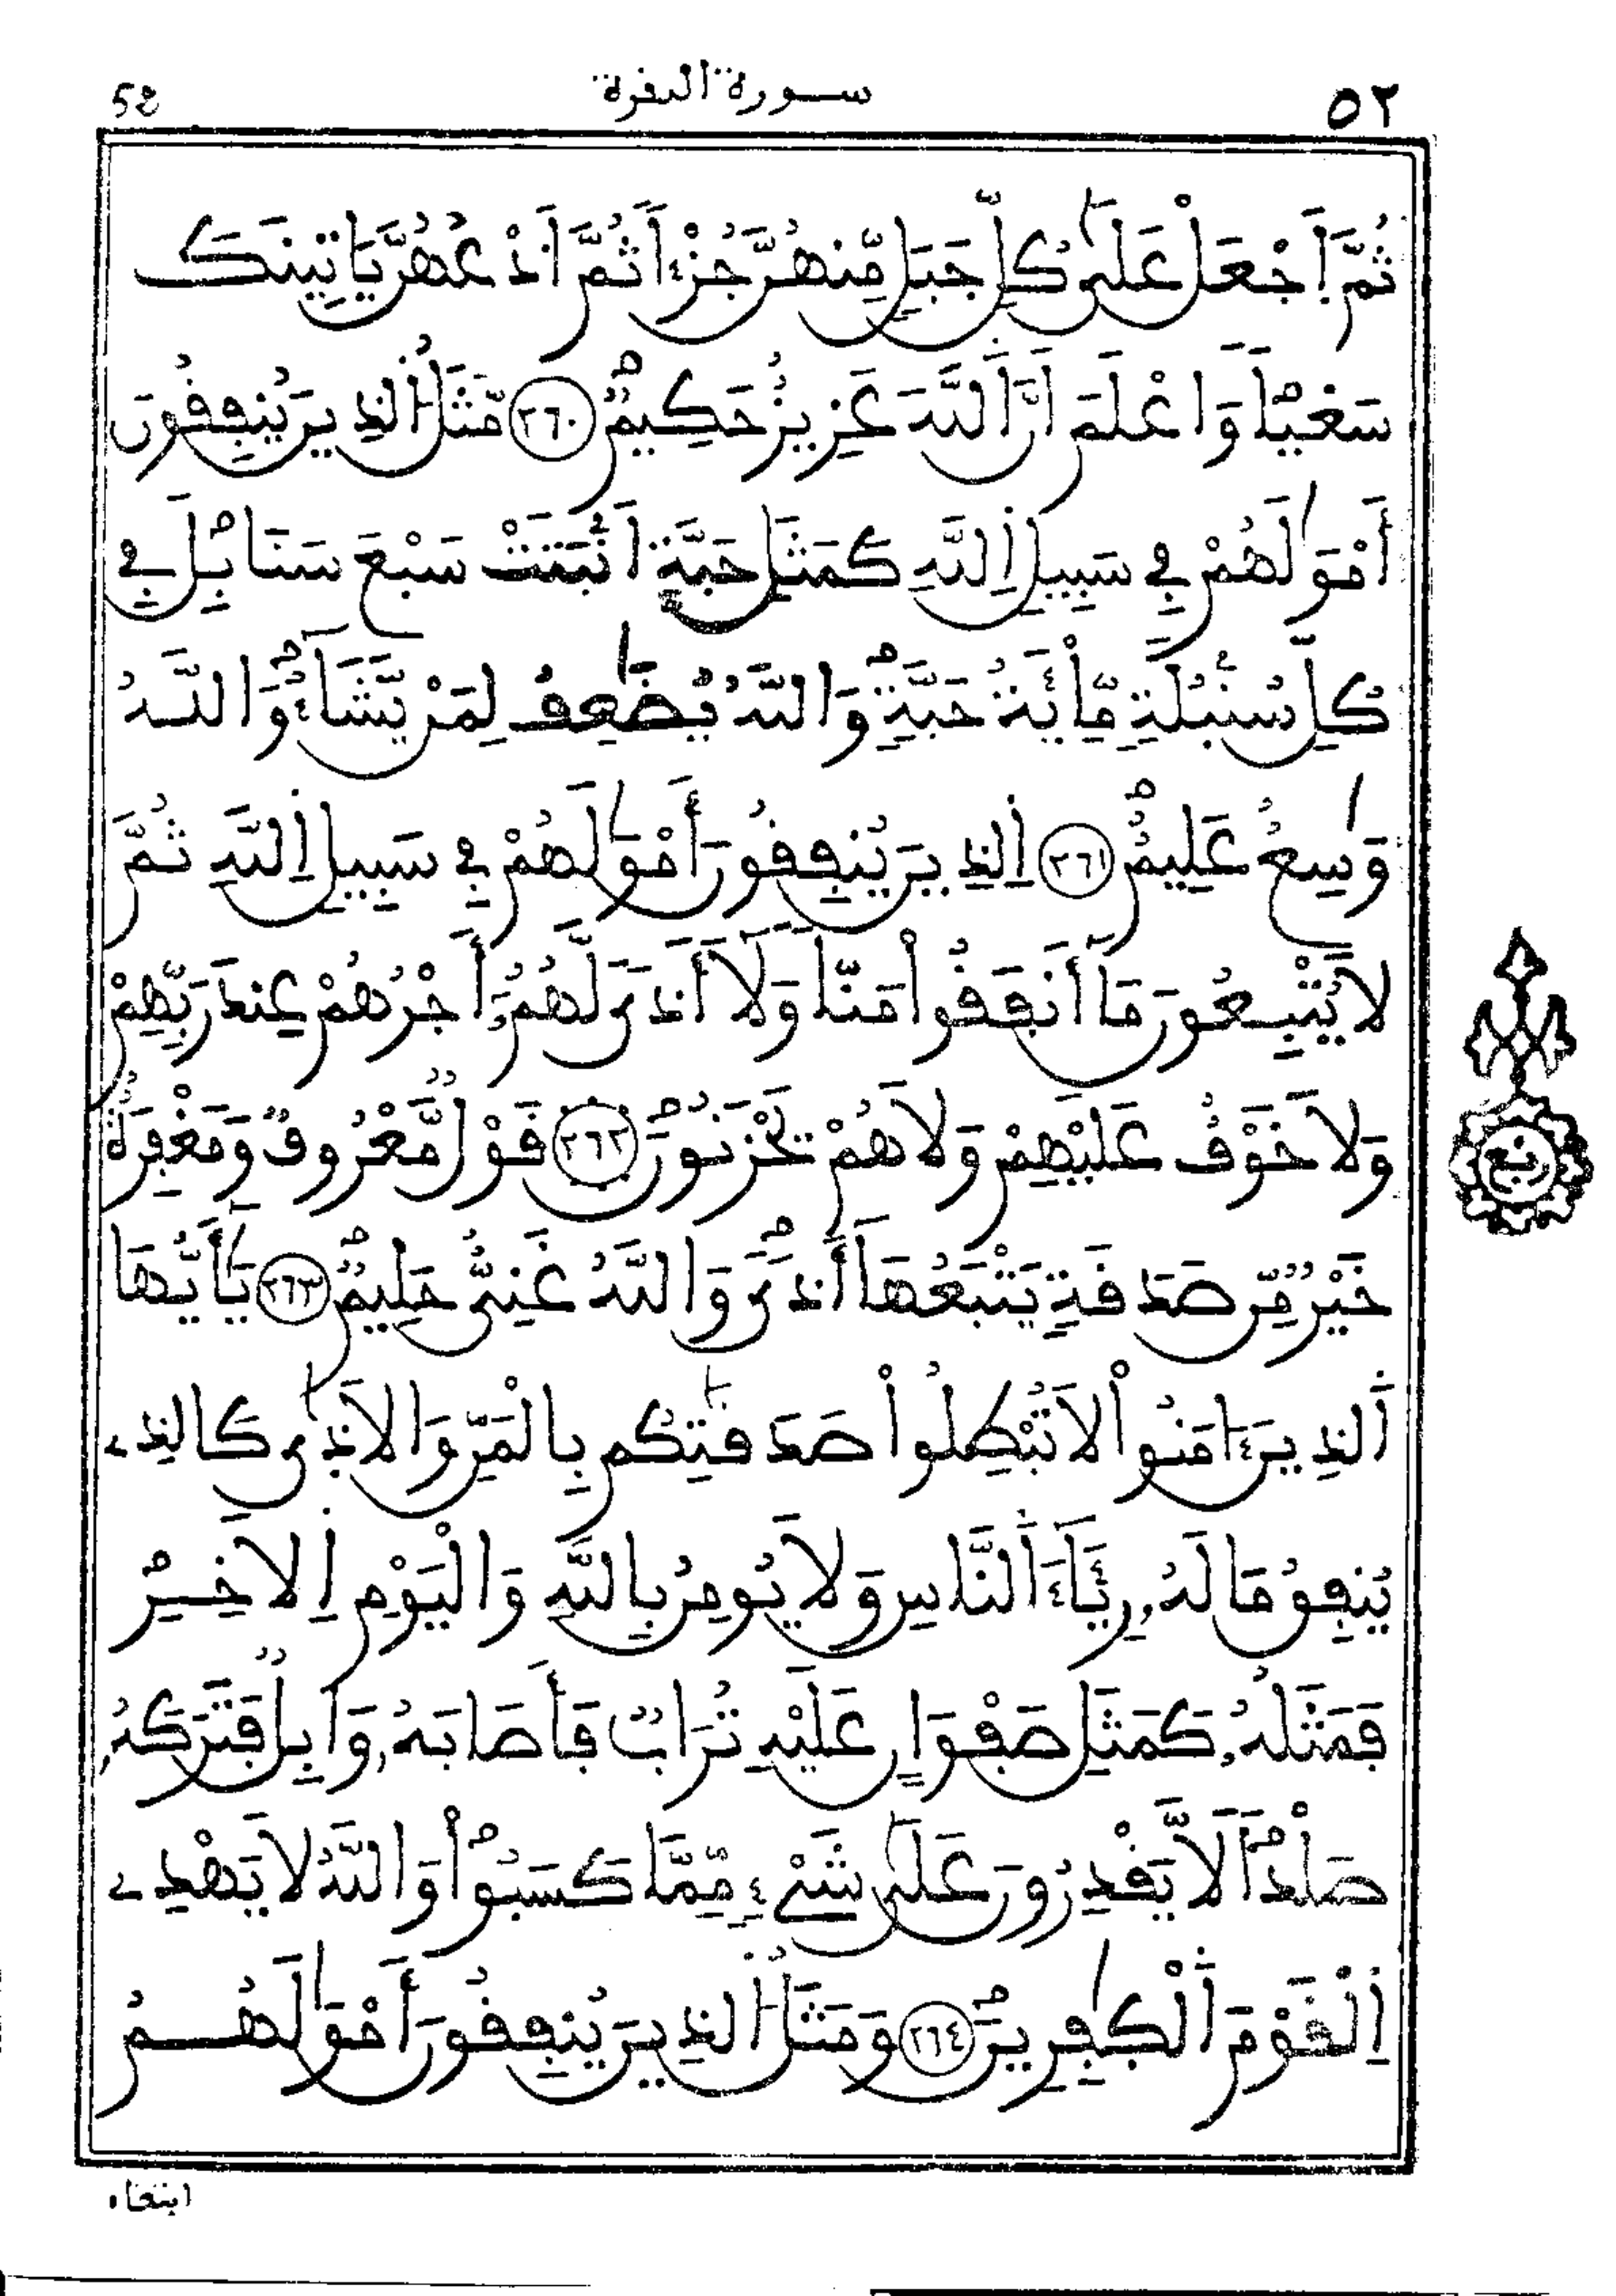 ٥٢ سورة البقرة 52
ثُمَّ اَجْعَلْ عَلَىٰ كُلِّ جَبَلٍ مِّنْهُنَّ جُزْءاً ثُمَّ اَدْعُهُنَّ يَاتِينَكَ
سَعْياً وَاعْلَمَ اَنَّ اَللَّهَ عَزِيزٌ حَكِيمٌ ٢٦٠ مَّثَلُ اُلذِينَ يُنفِقُونَ
أَمْوَٰلَهُمْ فِي سَبِيلِ اِللَّهِ كَمَثَلِ حَبَّةٍ اَنۢبَتَتْ سَبْعَ سَنَابِلَ فِي
كُلِّ سُنۢبُلَةٍ مِّاْيَةُ حَبَّةٍ وَاللَّهُ يُضَٰعِفُ لِمَنْ يَّشَآءُ وَاللَّهُ
وَٰسِعٌ عَلِيمٌ ٢٦١ اِلذِينَ يُنفِقُونَ أَمْوَٰلَهُمْ فِي سَبِيلِ اِللَّهِ ثُمَّ
لَا يُتْبِعُونَ مَآ أَنفَقُواْ مَنّاً وَلَآ أَذىً لَّهُمُۥٓ أَجْرُهُمْ عِندَ رَبِّهِمْ
وَلَا خَوْفٌ عَلَيْهِمْ وَلَا هُمْ يَحْزَنُونَ ٢٦٢ قَوْلٌ مَّعْرُوفٌ وَمَغْفِرَةٌ
خَيْرٌ مِّن صَدَقَةٍ يَتْبَعُهَآ أَذىً وَاللَّهُ غَنِيٌّ حَلِيمٌ ٢٦٣ يَٰٓأَيُّهَا
اَلذِينَ ءَامَنُواْ لَا تُبْطِلُواْ صَدَقَٰتِكُم بِالْمَنِّ وَالَاذَىٰ كَالذِے
يُنفِقُ مَالَهُۥ رِئَآءَ اَلنَّاسِ وَلَا يُومِنُ بِاللَّهِ وَالْيَوْمِ اِلَاخِرِ
فَمَثَلُهُۥ كَمَثَلِ صَفْوَانٍ عَلَيْهِ تُرَابٌ فَأَصَابَهُۥ وَابِلٌ فَتَرَكَهُۥ
صَلْداً لَّا يَقْدِرُونَ عَلَىٰ شَيْءٍ مِّمَّا كَسَبُواْ وَاللَّهُ لَا يَهْدِے
اِلْقَوْمَ اَلْكَٰفِرِينَ ٢٦٤ وَمَثَلُ اُلذِينَ يُنفِقُونَ أَمْوَٰلَهُمُ
ربع
ابتغاء